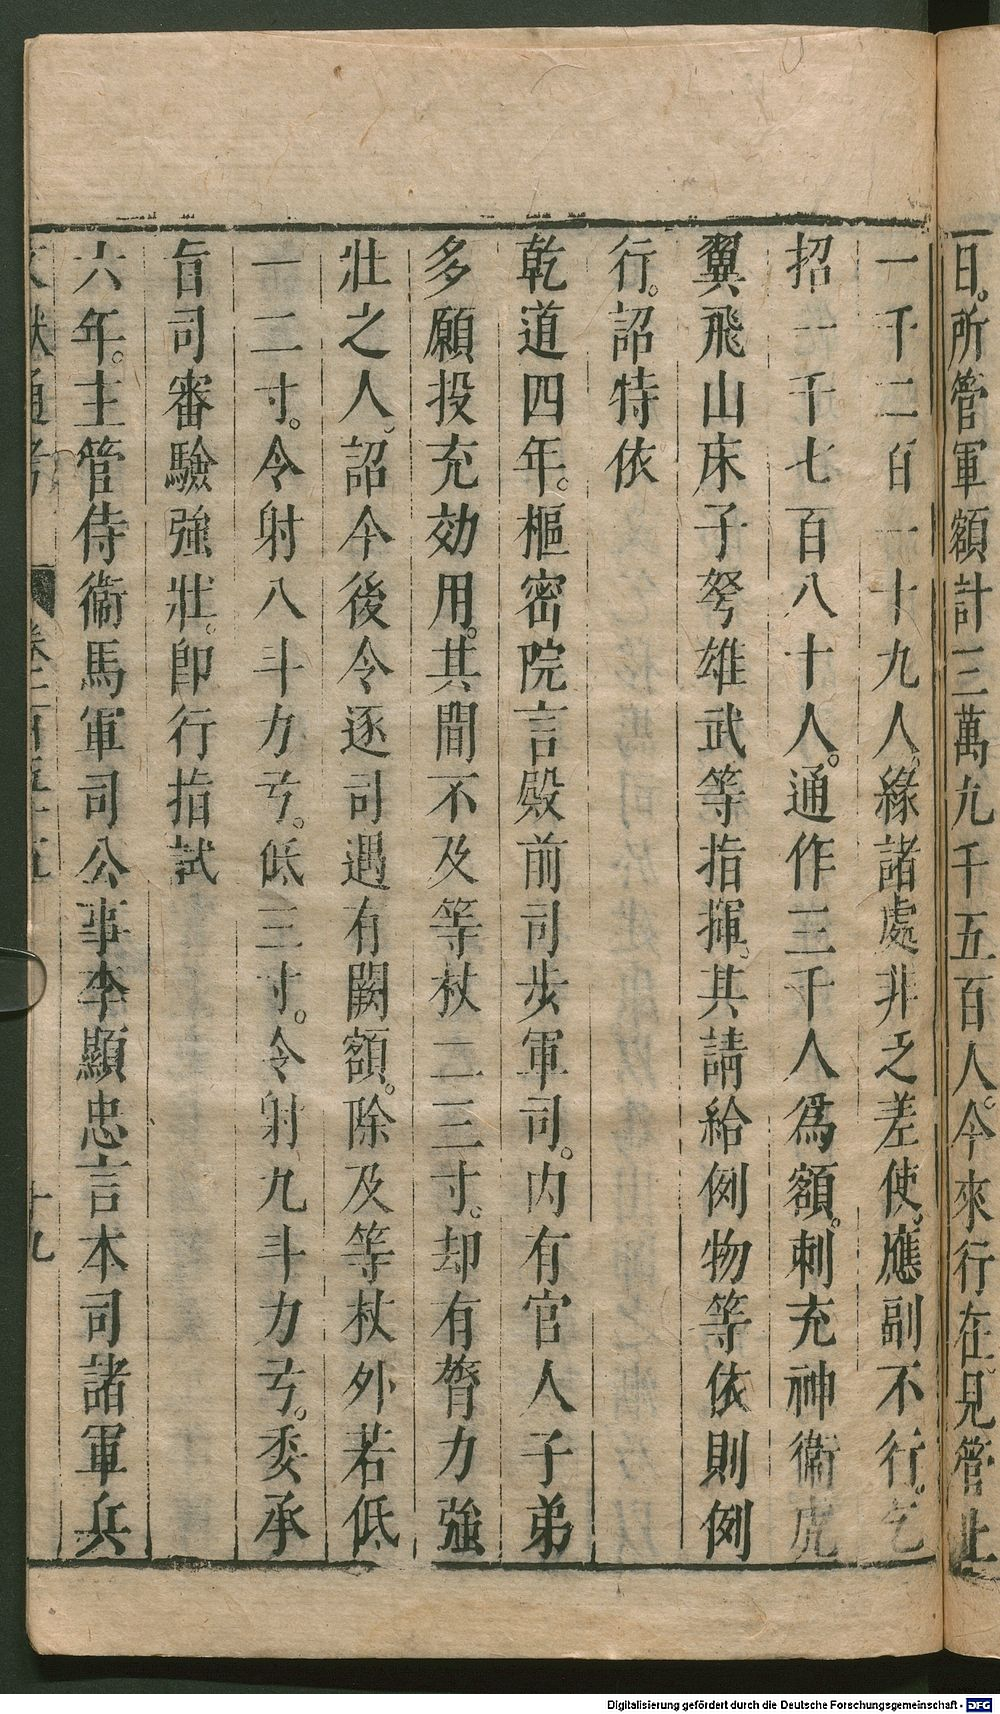 日。所管軍額計三萬九千五百人。今來行在。見管止
一千二百一十九人。緣諸處非乏差使。應副不行。乞
招一千七百八十人。通作三千人爲額。刺充神衛虎
翼飛山床子弩雄武等指揮。其請給例物等依則例
行。詔特依
乾道四年。樞密院言殿前司步軍司。內有官人子弟
多願投充効用。其間不及等杖二三寸。却有膂力強
壯之人。詔今後令逐司遇有闕額。除及等杖外若低
一二寸。令射八斗力弓。低三寸。令射九斗力弓。委承
旨司審驗強壯。卽行指試
六年。主管侍衞馬軍司公事李顯忠言本司諸軍兵
文獻通考 卷一百五十五 十九
Digitalisierung gefördert durch die Deutsche Forschungsgemeinschaft - DFG